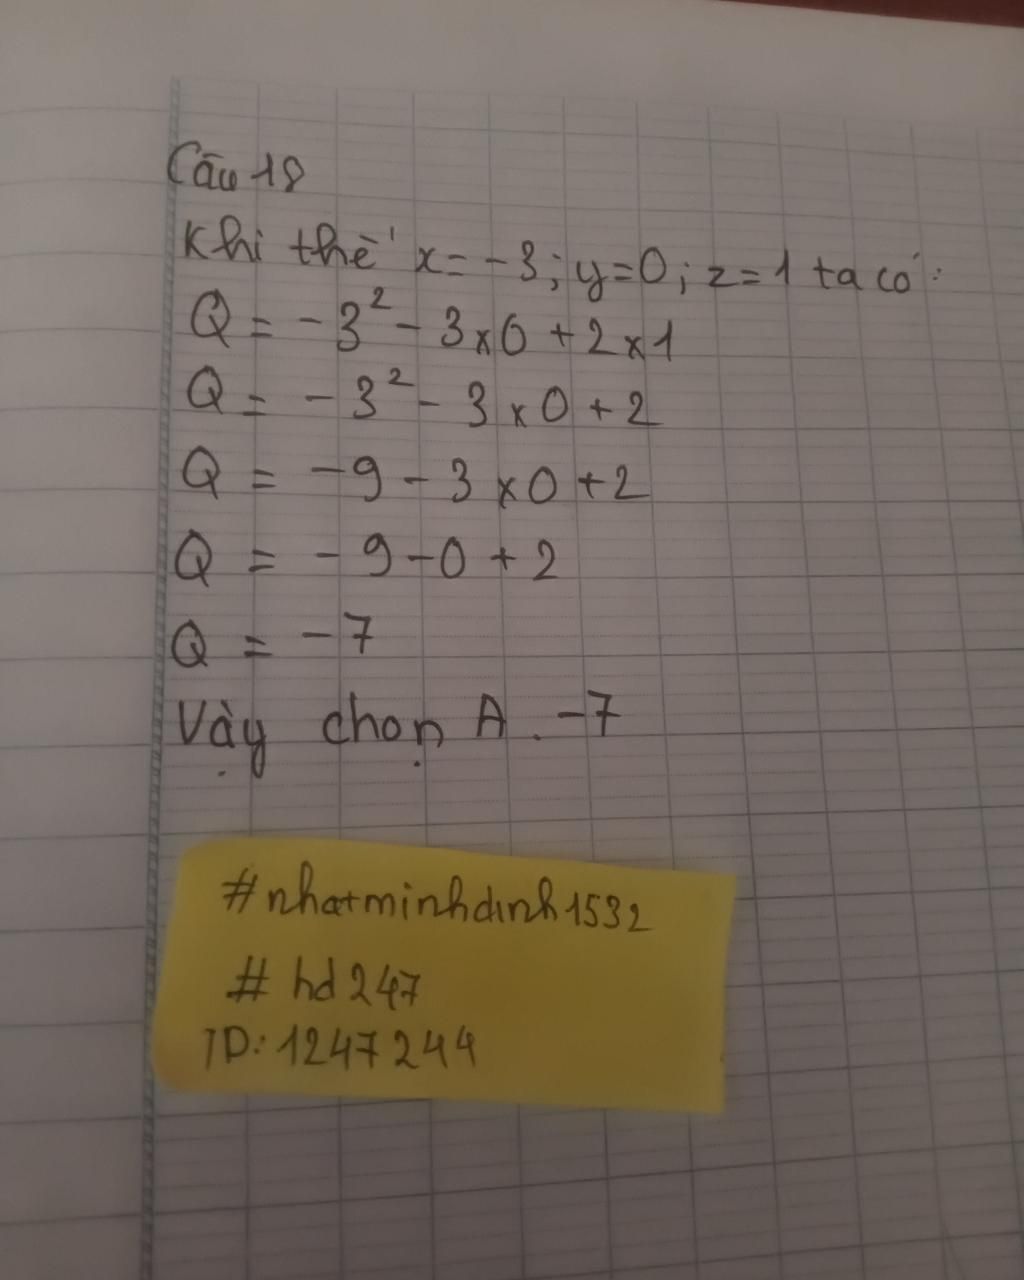 Câu 18
Khi thế x = -3; y=0; z=1 ta có:
Q = -3² - 3x0 + 2x1
Q = -3² - 3x0 + 2
Q = -9 - 3x0 + 2
Q = -9 - 0 + 2
Q = -7
Vậy chọn A. -7
#nhatminhdinh1532
#hd247
ID: 1247244